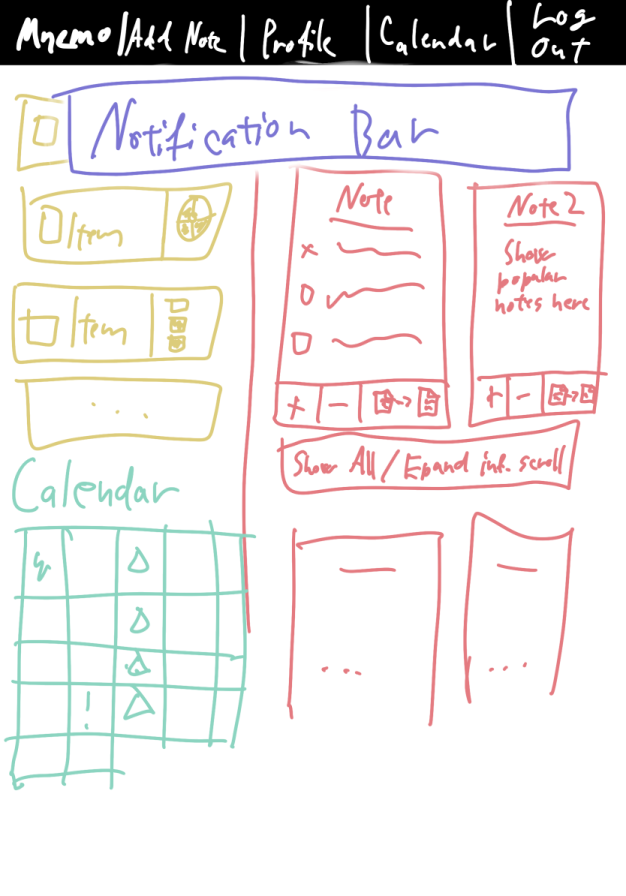 Mnemo | Add Note | Profile | Calendar | Log Out
Notification Bar
Item
Item
...
Calendar
!
Note
Note 2
Show
popular
notes here
+ -
+ -
Show All / Epand inf. scroll
...
...